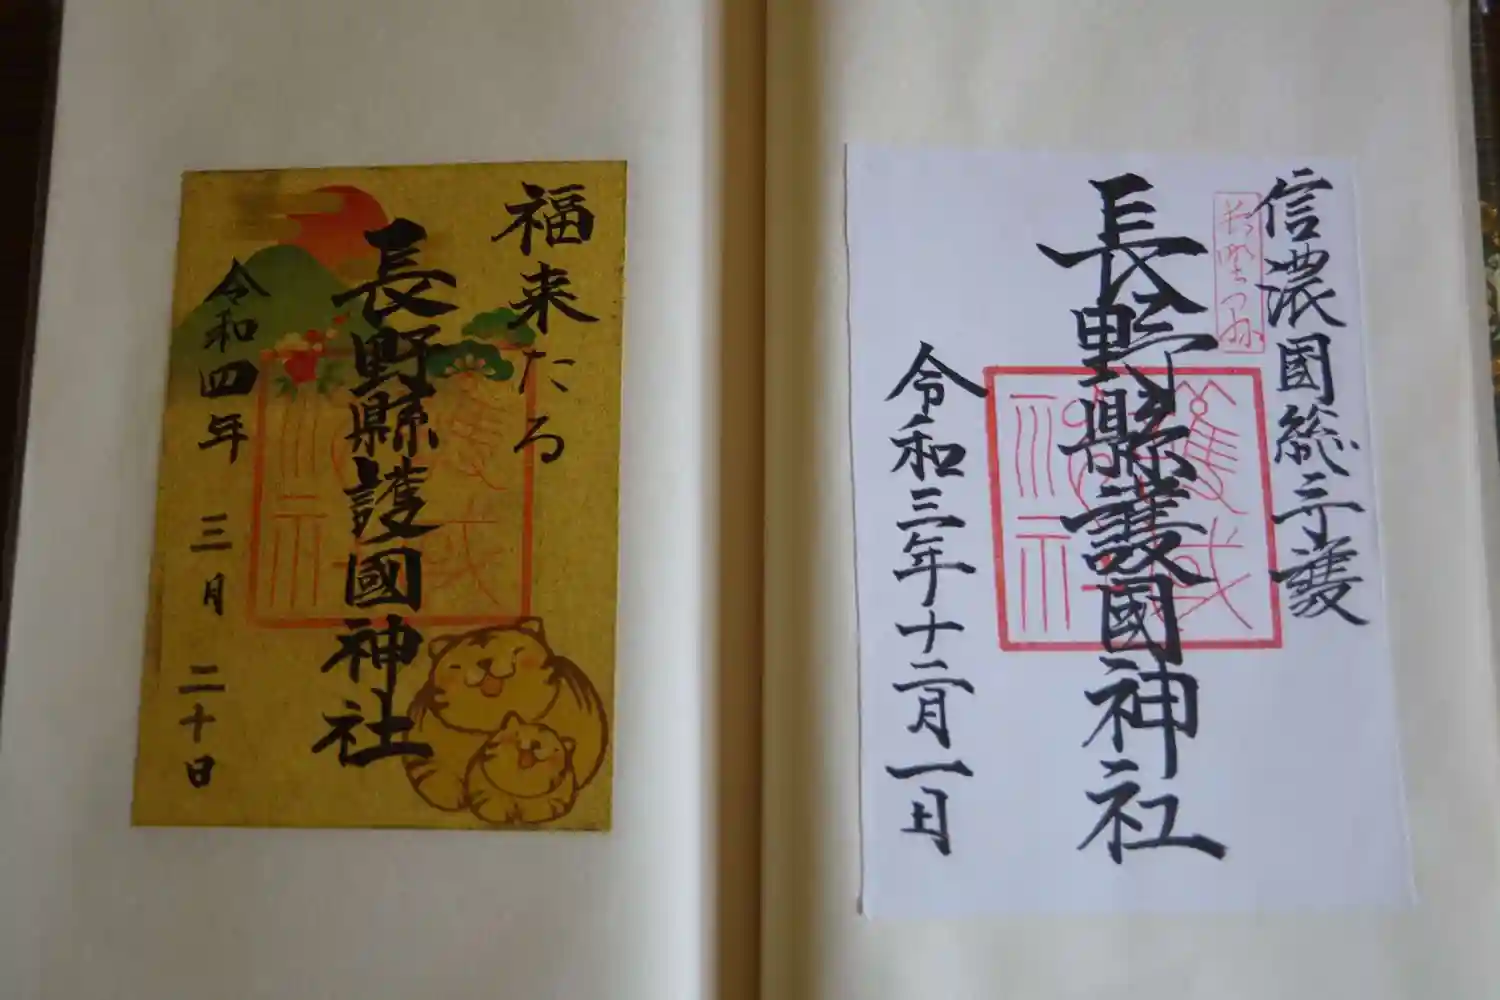 信濃国総守護
長野縣護國神社
令和三年十二月一日
福来たる
長野縣護國神社
令和四年 三月 二十日